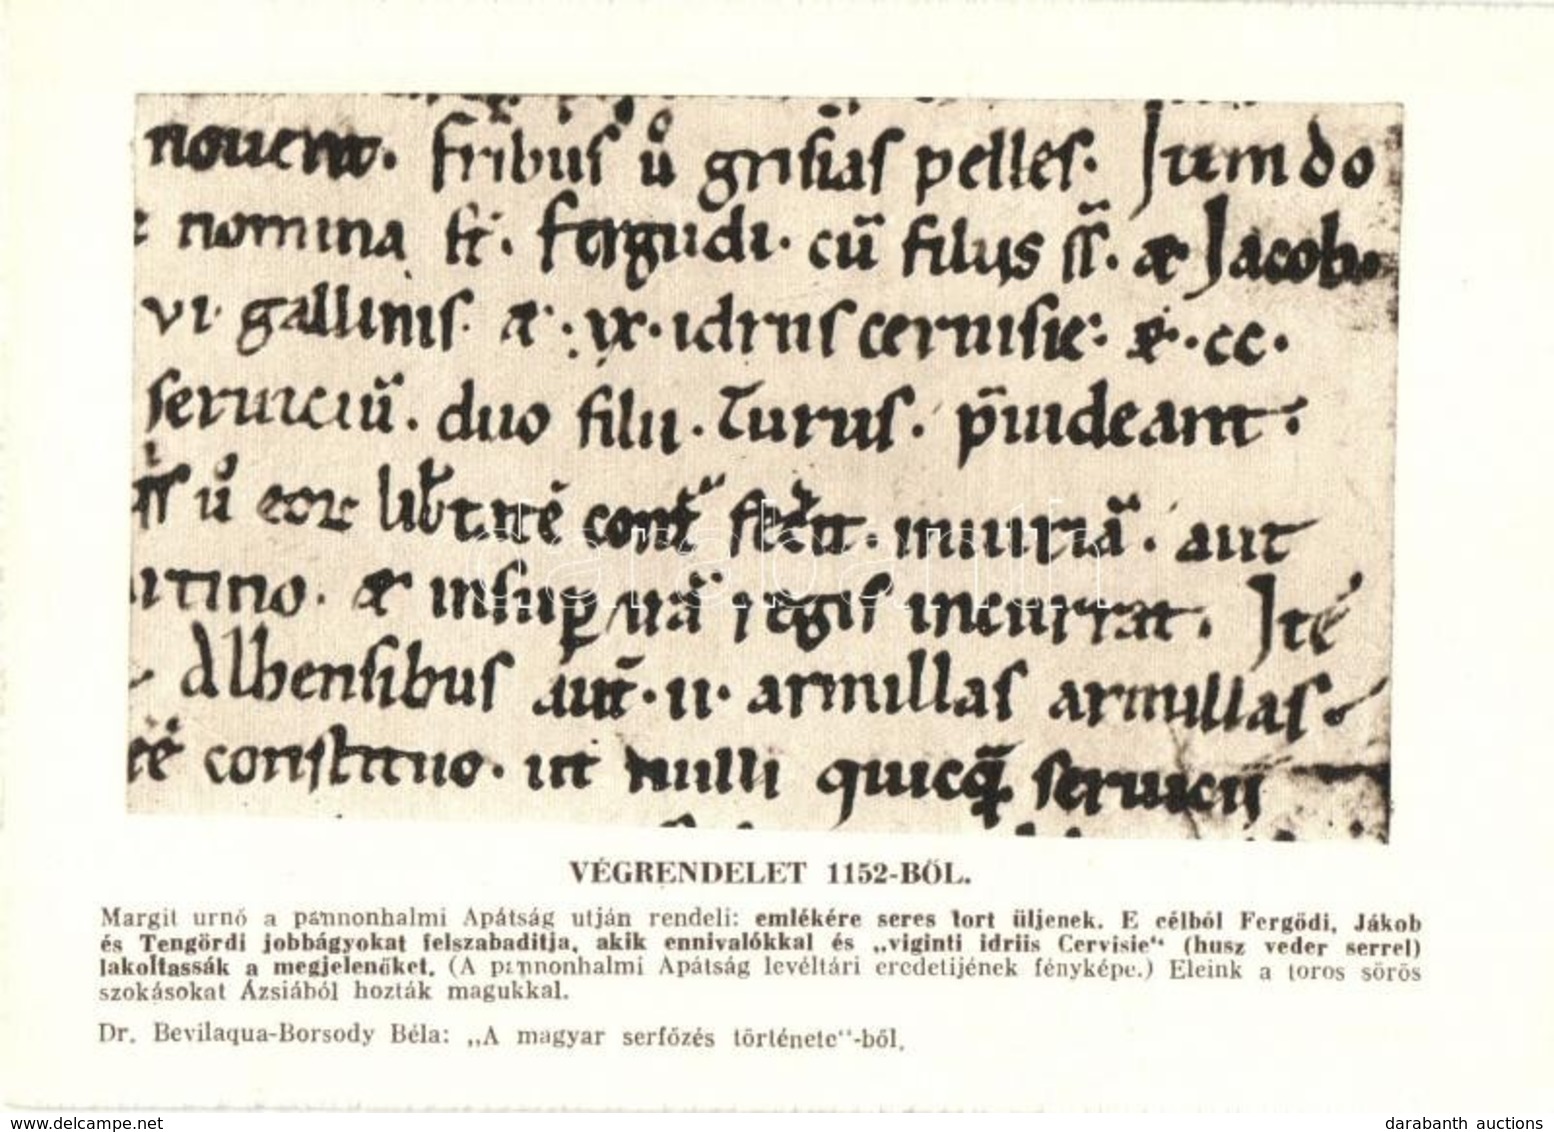 nouerit. fr̄ibus ů grisias pelles. Jumdo
nomina s̄t. fergudi. cū filiis s̄s. & Jacob.
vi gallinis. &. x. idriis ceruisie: &. cc.
seruiciū. duo filii. Turus. p̄uideant.
ů eoꝝ lib̄tatē cont̃ fec̄it. iniuriā. aut
& insuꝑ irā regis incurrat. Jtē
Albensibus aut̄. ii. armillas armillas.
constituo. ut nulli quicq̄ seruicii
VÉGRENDELET 1152-BŐL.
Margit urnő a pannonhalmi Apátság utján rendeli: emlékére seres tort üljenek. E célból Fergödi, Jákob
és Tengördi jobbágyokat felszabaditja, akik ennivalókkal és „viginti idriis Cervisie“ (husz veder serrel)
lakoltassák a megjelenőket. (A pannonhalmi Apátság levéltári eredetijének fényképe.) Eleink a toros sörös
szokásokat Ázsiából hozták magukkal.
Dr. Bevilaqua-Borsody Béla: „A magyar serfőzés története“-ből.
darabanth
delcampe.net
darabanth auctions